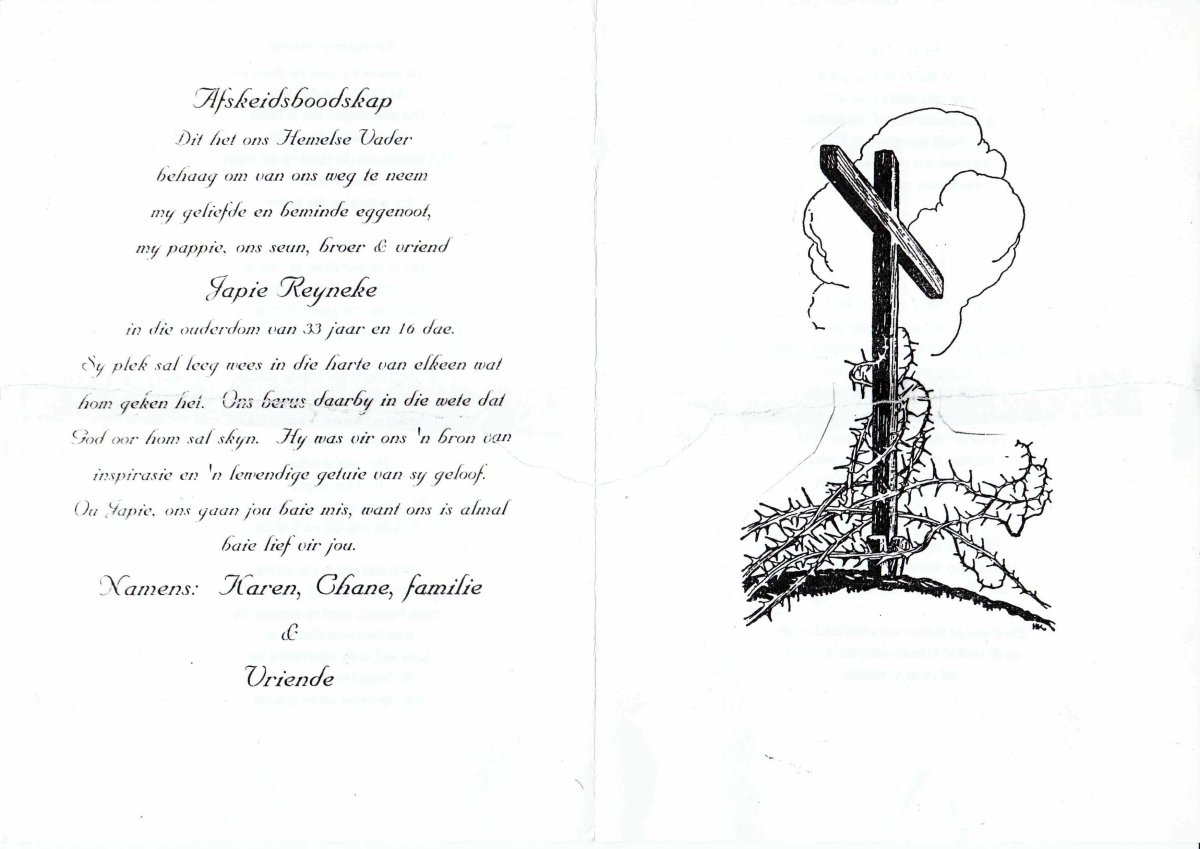 Afskeidsboodskap
Dit het ons Hemelse Vader
behaag om van ons weg te neem
my geliefde en beminde eggenoot,
my pappie, ons seun, broer & vriend
Japie Reyneke
in die ouderdom van 33 jaar en 16 dae.
Sy plek sal leeg wees in die harte van elkeen wat
hom geken het. Ons berus daarby in die wete dat
God oor hom sal skyn. Hy was vir ons 'n bron van
inspirasie en 'n lewendige getuie van sy geloof.
Ou Japie, ons gaan jou baie mis, want ons is almal
baie lief vir jou.
Namens: Karen, Chane, familie
&
Vriende